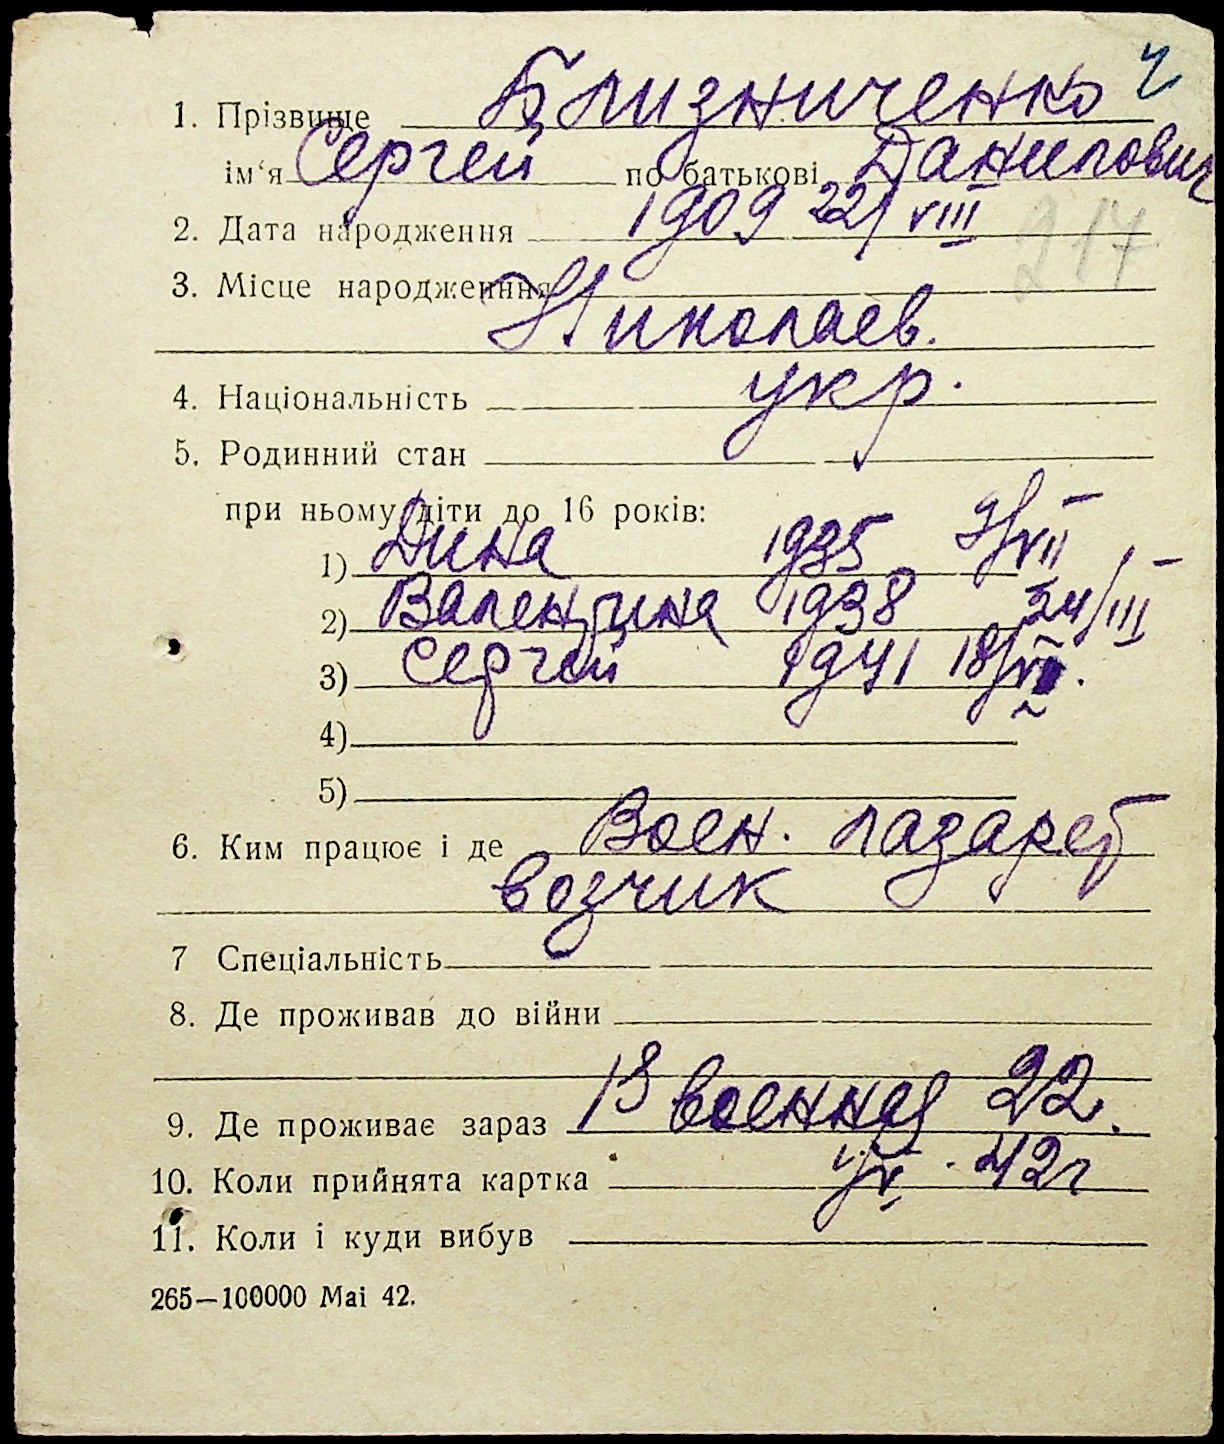 ч
1. Прізвище Близниченко
ім'я Сергей по батькові Данилович
2. Дата народження 1909 22/VIII
217
3. Місце народженння
Николаев.
4. Національність укр.
5. Родинний стан
при ньому діти до 16 років:
1) Дина 1935 9/VII
2) Валентина 1938 24/III
3) Сергей 1941 18/
4)
5)
6. Ким працює і де Воен. лазарет
возчик
7 Спеціальність
8. Де проживав до війни
9. Де проживає зараз 13 военная 22.
10. Коли прийнята картка 42г
11. Коли і куди вибув
265—100000 Mai 42.